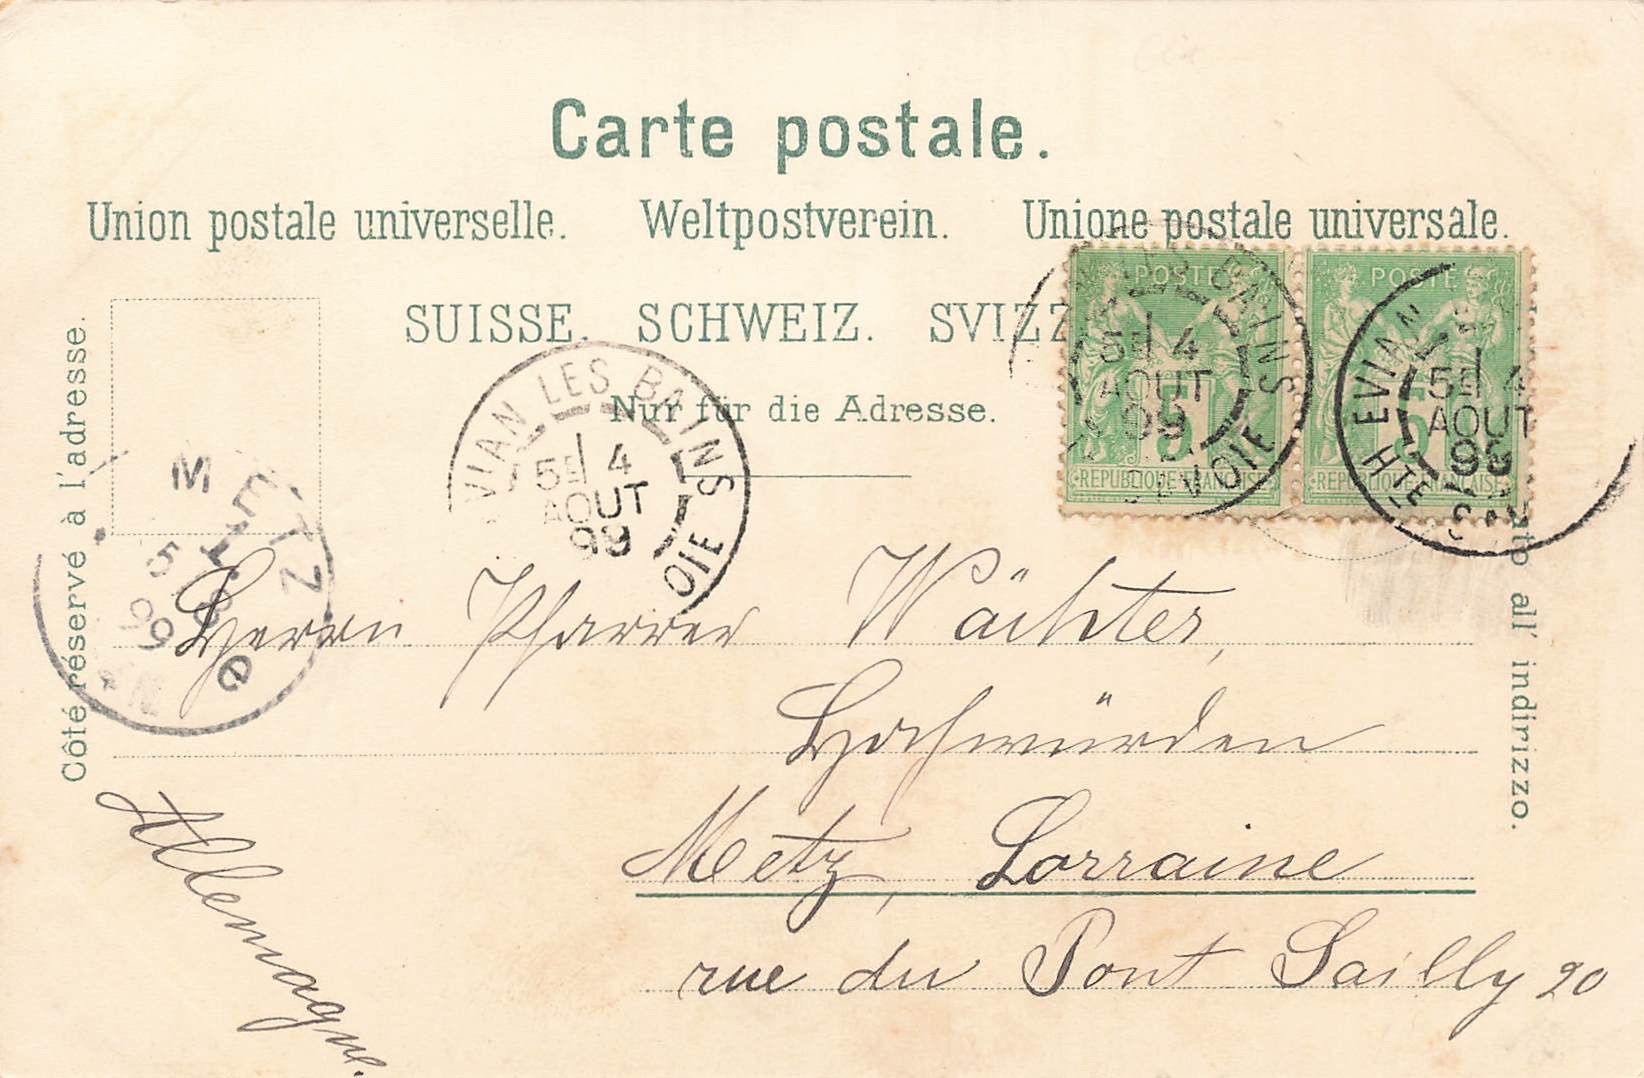 Carte postale.
Union postale universelle. Weltpostverein. Unione postale universale.
SUISSE. SCHWEIZ. SVIZZ
Nur für die Adresse.
Côté réservé à l'adresse.
ato all' indirizzo.
POSTE
5
REPUBLIQUE FRANCAISE
POSTE
5
REPUBLIQUE FRANCAISE
LES BAINS
5E 4
AOUT
99
SAVOIE
EVIAN
5E 4
AOUT
99
HTE
VIAN LES BAINS
5E 4
AOUT
99
OIE
METZ
5
8
99
e
Herrn Pfarrer Wächter,
Hochwürden
Metz, Lorraine
rue du Pont Sailly 20
Allemagne.